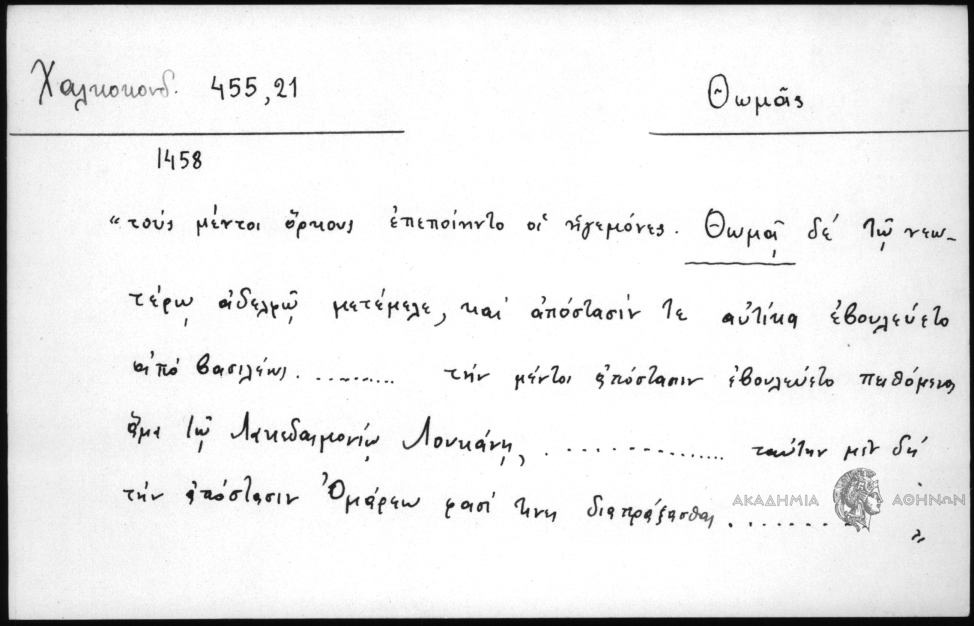 Χαλκοκονδ. 455,21
Θωμᾶς
1458
“τοὺς μέντοι ὅρκους ἐπεποίηντο οἱ ἡγεμόνες. Θωμᾷ δὲ τῷ νεω-
τέρῳ ἀδελφῷ μετέμελε, καὶ ἀπόστασίν τε αὐτίκα ἐβουλεύετο
ἀπὸ βασιλέως. .......... τὴν μέντοι ἀπόστασιν ἐβουλεύετο πειθόμενος
ἅμα τῷ Λακεδαιμονίῳ Λουκάνῃ, ................ ταύτην μὲν δὴ
τὴν ἀπόστασιν Ὀμάρεω φασί τινες διαπράξασθαι ........ „
ΑΚΑΔΗΜΙΑ ΑΘΗΝΩΝ